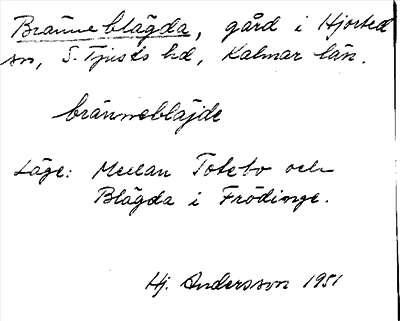 Bränneblägda, gård i Hjorted
sn, S. Tjusts hd, Kalmar län.
bränneblajde
Läge: Mellan Totebo och
Blägda i Frödinge.
Hj. Andersson 1951